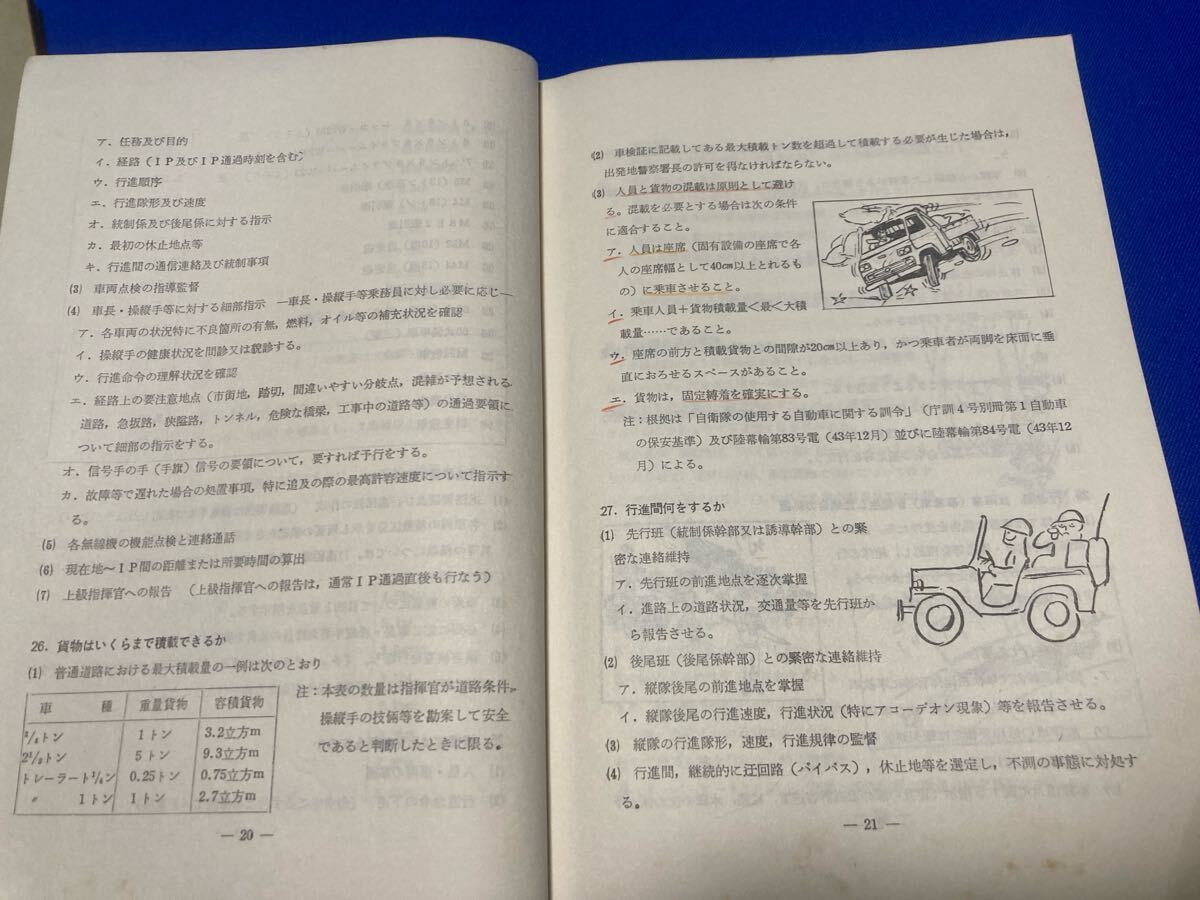 ア．任務及び目的
イ．経路（ＩＰ及びＩＰ通過時刻を含む）
ウ．行進順序
エ．行進隊形及び速度
オ．統制係及び後尾係に対する指示
カ．最初の休止地点等
キ．行進間の通信連絡及び統制事項
(3) 車両点検の指導監督
(4) 車長・操縦手等に対する細部指示 ―車長・操縦手等乗務員に対し必要に応じ―
ア．各車両の状況特に不良箇所の有無，燃料，オイル等の補充状況を確認
イ．操縦手の健康状況を問診又は貌診する。
ウ．行進命令の理解状況を確認
エ．経路上の要注意地点（市街地，踏切，間違いやすい分岐点，混雑が予想される
道路，急坂路，狭隘路，トンネル，危険な橋梁，工事中の道路等）の通過要領に
ついて細部の指示をする。
オ．信号手の手（手旗）信号の要領について，要すれば予行をする。
カ．故障等で遅れた場合の処置事項，特に追及の際の最高許容速度について指示す
る。
(5) 各無線機の機能点検と連絡通話
(6) 現在地～ＩＰ間の距離または所要時間の算出
(7) 上級指揮官への報告 （上級指揮官への報告は，通常ＩＰ通過直後も行なう）
26．貨物はいくらまで積載できるか
(1) 普通道路における最大積載量の一例は次のとおり
車 種 重量貨物 容積貨物
3/4トン 1トン 3.2立方m
2 1/2トン 5トン 9.3立方m
トレーラー1/4トン 0.25トン 0.75立方m
〃 1トン 1トン 2.7立方m
注：本表の数量は指揮官が道路条件，
操縦手の技倆等を勘案して安全
であると判断したときに限る。
― 20 ―
(2) 車検証に記載してある最大積載トン数を超過して積載する必要が生じた場合は，
出発地警察署長の許可を得なければならない。
(3) 人員と貨物の混載は原則として避け
る。混載を必要とする場合は次の条件
に適合すること。
ア．人員は座席（固有設備の座席で各
人の座席幅として40cm以上とれるも
の）に乗車させること。
イ．乗車人員＋貨物積載量＜最＜大積
載量……であること。
ウ．座席の前方と積載貨物との間隙が20cm以上あり，かつ乗車者が両脚を床面に垂
直におろせるスペースがあること。
エ．貨物は，固定縛着を確実にする。
注：根拠は「自衛隊の使用する自動車に関する訓令」（庁訓４号別冊第１自動車
の保安基準）及び陸幕輸第83号電（43年12月）並びに陸幕輸第84号電（43年12
月）による。
27．行進間何をするか
(1) 先行班（統制係幹部又は誘導幹部）との緊
密な連絡維持
ア．先行班の前進地点を逐次掌握
イ．進路上の道路状況，交通量等を先行班か
ら報告させる。
(2) 後尾班（後尾係幹部）との緊密な連絡維持
ア．縦隊後尾の前進地点を掌握
イ．縦隊後尾の行進速度，行進状況（特にアコーデオン現象）等を報告させる。
(3) 縦隊の行進隊形，速度，行進規律の監督
(4) 行進間，継続的に迂回路（バイパス），休止地等を選定し，不測の事態に対処す
る。
― 21 ―